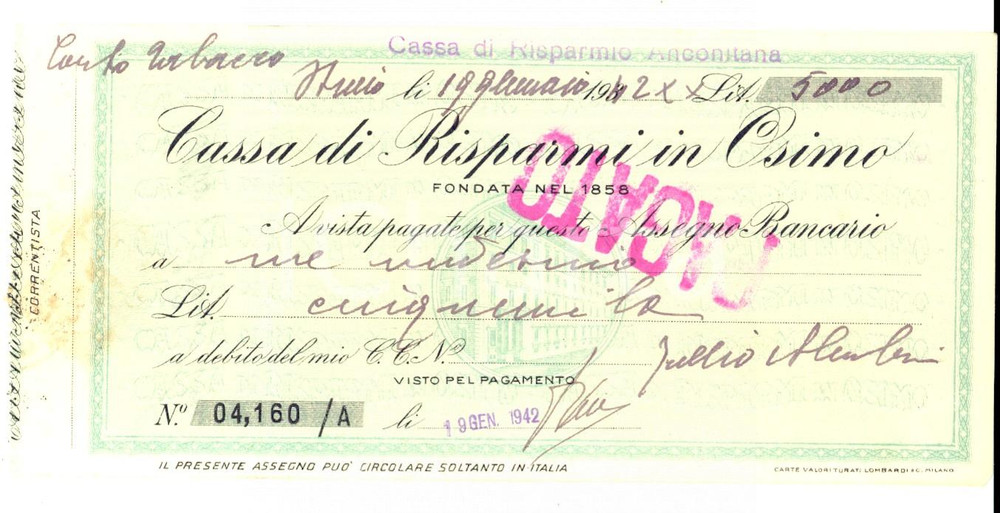 Cassa di Risparmio Anconitana
Conto Tabacco
li 19 gennaio 1942 XX Lit. 5000
Cassa di Risparmi in Osimo
FONDATA NEL 1858
PAGATO
A vista pagate per questo Assegno Bancario
a me medesimo
Lit. cinquemila
a debito del mio C. C. N.º
VISTO PEL PAGAMENTO
N.º 04,160 /A li 19 GEN. 1942
CORRENTISTA
IL PRESENTE ASSEGNO PUO' CIRCOLARE SOLTANTO IN ITALIA
CARTE VALORI TURATI LOMBARDI & C. MILANO